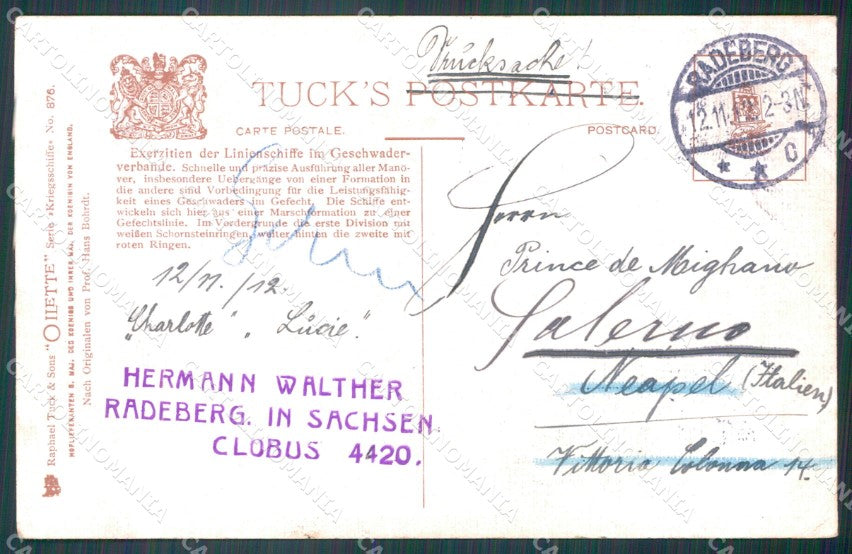 Drucksache!
TUCK'S POSTKARTE.
CARTE POSTALE.
POSTCARD.
RADEBERG
12.11.12. 2-3N.
* * C
Raphael Tuck & Sons "OILETTE" Serie »Kriegsschiffe« No. 876.
HOFLIEFERANTEN S. MAJ. DES KOENIGS UND IHRER MAJ. DER KOENIGIN VON ENGLAND.
Nach Originalen von Prof. Hans Bohrdt.
Exerzitien der Linienschiffe im Geschwader-
verbande. Schnelle und präzise Ausführung aller Manö-
ver, insbesondere Uebergänge von einer Formation in
die andere sind Vorbedingung für die Leistungsfähig-
keit eines Geschwaders im Gefecht. Die Schiffe ent-
wickeln sich hier aus einer Marschformation zu einer
Gefechtslinie. Im Vordergrunde die erste Division mit
weißen Schornsteinringen, weiter hinten die zweite mit
roten Ringen.
12/11./12.
"Charlotte" "Lucie".
HERMANN WALTHER
RADEBERG. IN SACHSEN.
CLOBUS 4420.
Herrn
Prince de Mighano
Salerno
Neapel (Italien)
Vittoria Colonna 14.
CARTOLINOMANIA